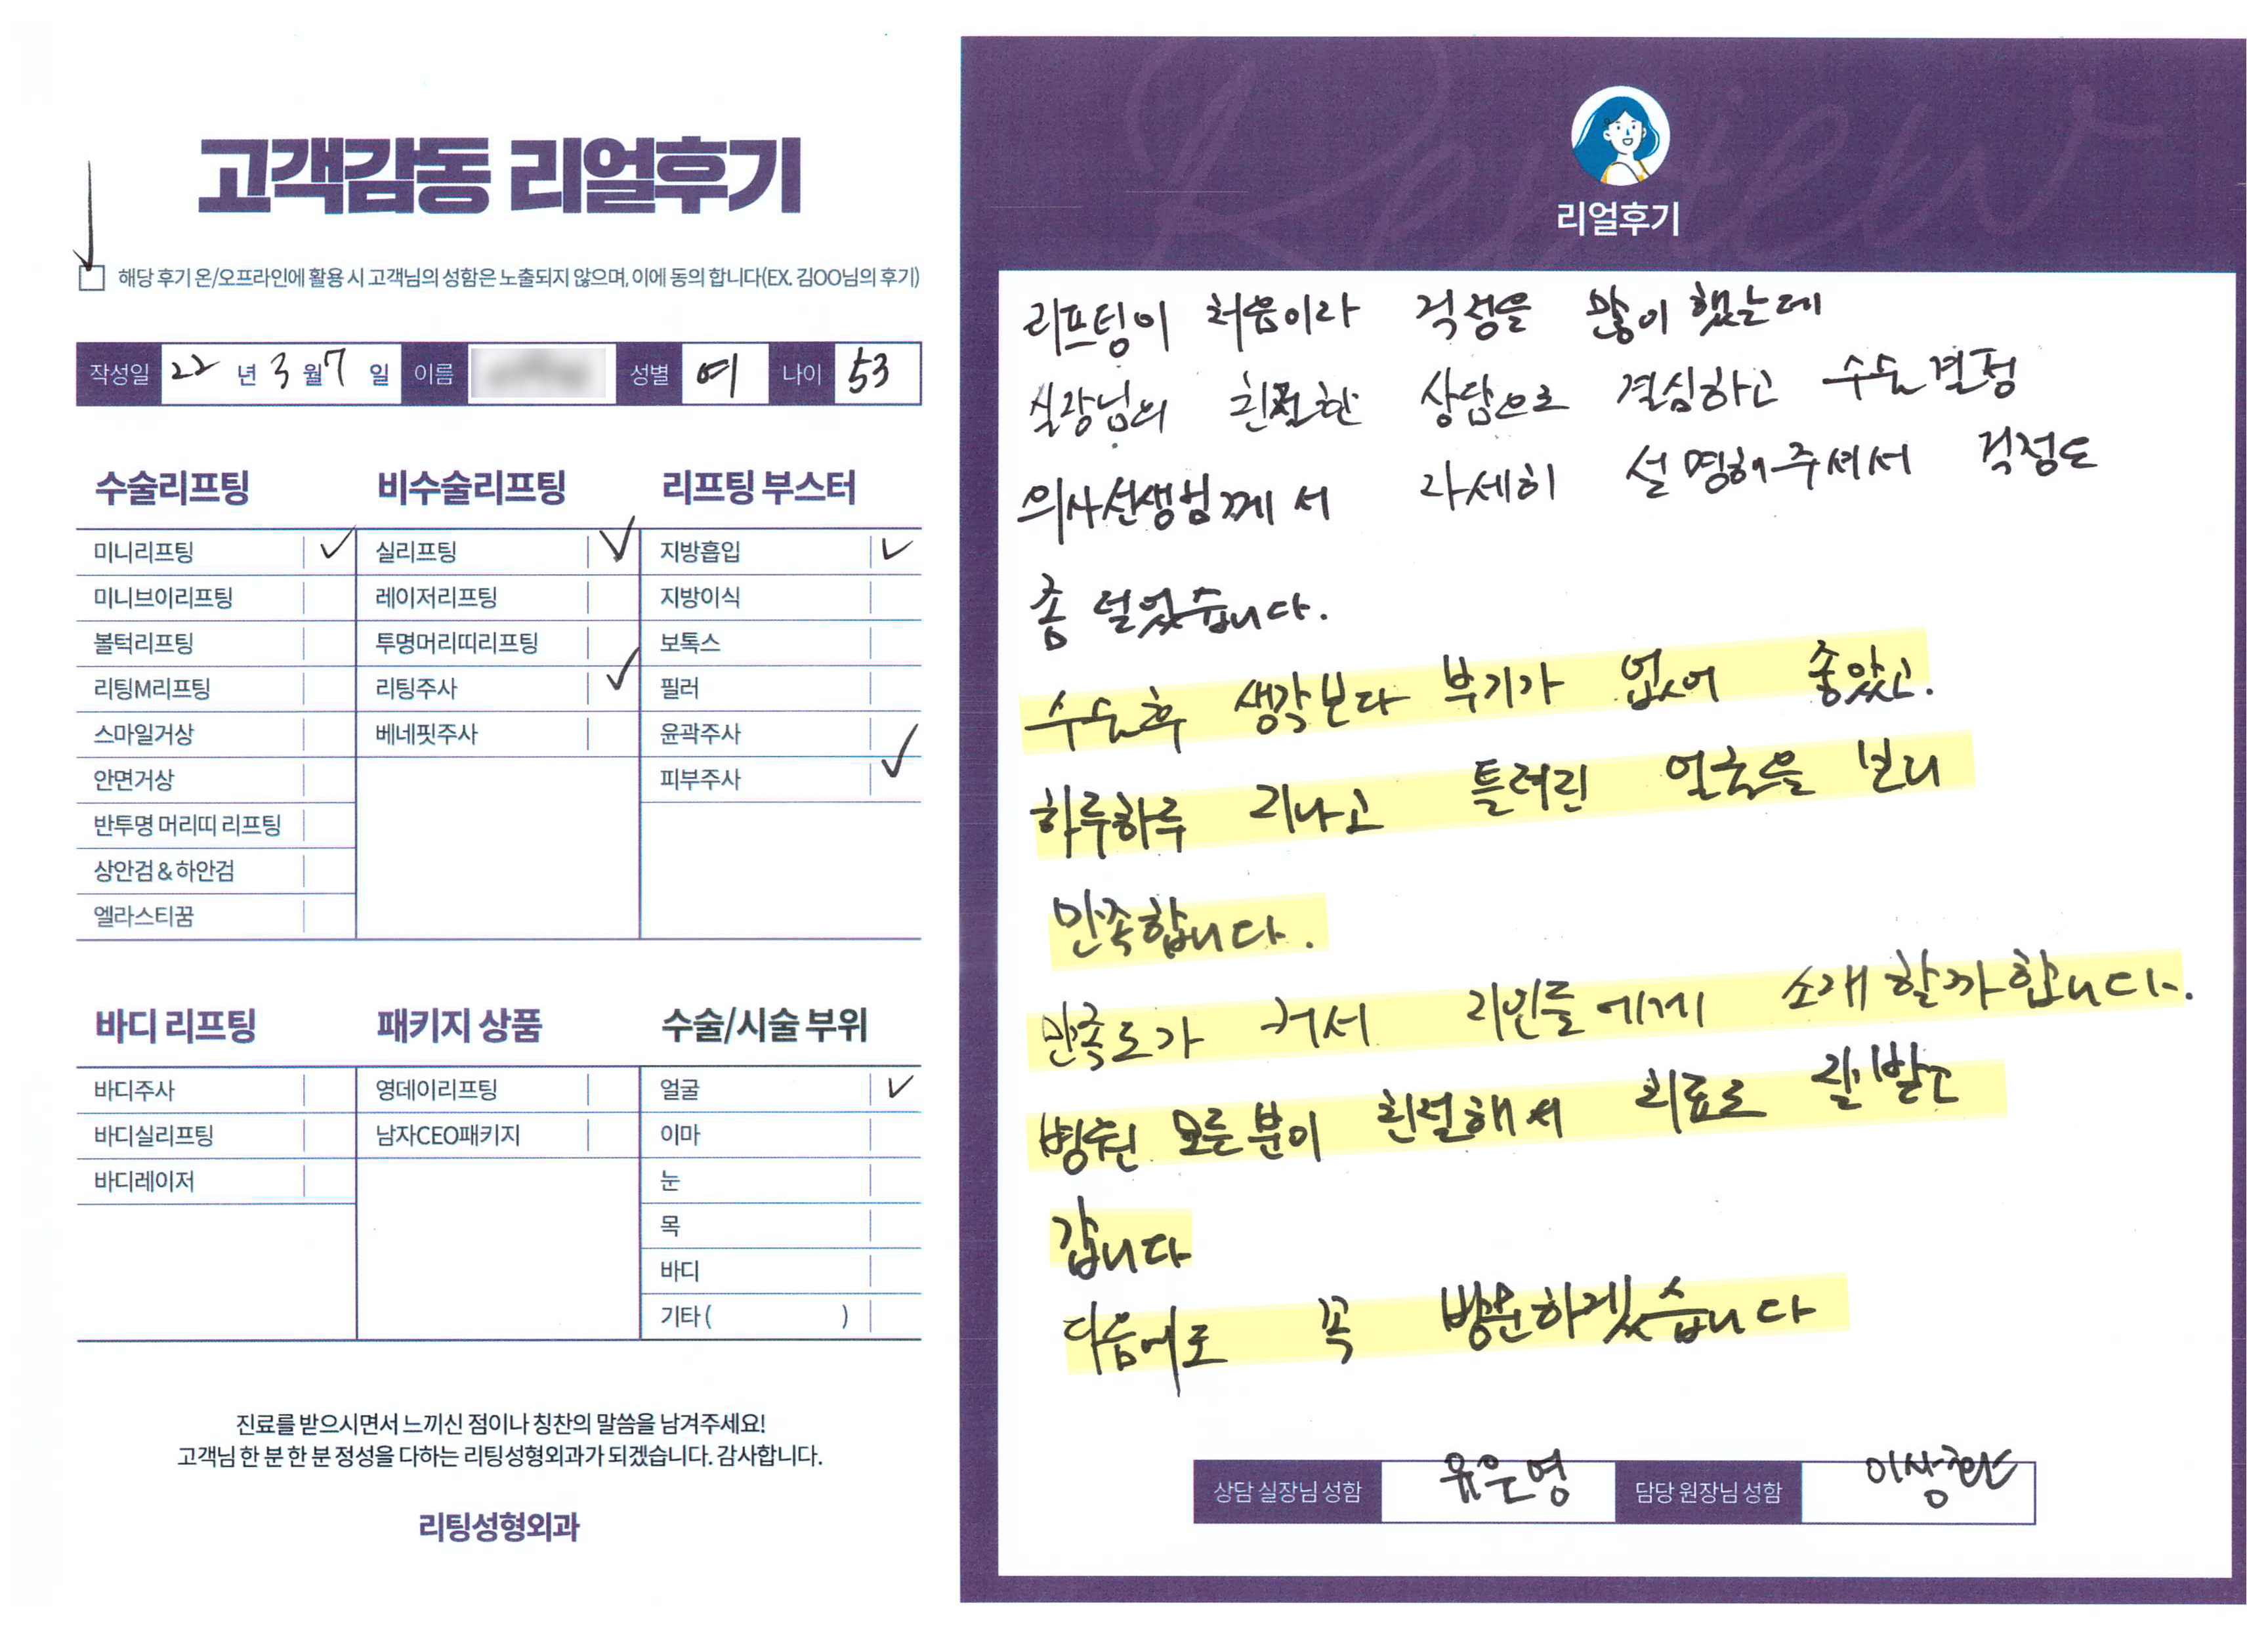 고객감동 리얼후기
해당 후기 온/오프라인에 활용 시 고객님의 성함은 노출되지 않으며, 이에 동의 합니다(EX. 김OO님의 후기)
작성일 22 년 3 월 7 일 이름 성별 여 나이 53
수술리프팅 비수술리프팅 리프팅 부스터
미니리프팅 실리프팅 지방흡입
미니브이리프팅 레이저리프팅 지방이식
볼턱리프팅 투명머리띠리프팅 보톡스
리팅M리프팅 리팅주사 필러
스마일거상 베네핏주사 윤곽주사
안면거상 피부주사
반투명 머리띠 리프팅
상안검 & 하안검
엘라스티꿈
바디 리프팅 패키지 상품 수술/시술 부위
바디주사 영데이리프팅 얼굴
바디실리프팅 남자CEO패키지 이마
바디레이저 눈
목
바디
기타 ( )
진료를 받으시면서 느끼신 점이나 칭찬의 말씀을 남겨주세요!
고객님 한 분 한 분 정성을 다하는 리팅성형외과가 되겠습니다. 감사합니다.
리팅성형외과
Review
리얼후기
리프팅이 처음이라 걱정을 많이 했는데
실장님의 친절한 상담으로 결심하고 수술결정
의사선생님께서 자세히 설명해주셔서 걱정도
좀 덜었습니다.
수술후 생각보다 부기가 없어 좋았고.
하루하루 지나고 틀려진 얼굴을 보니
만족합니다.
만족도가 커서 지인들에게 소개할까합니다.
병원 모든분이 친절해서 치료도 잘받고
갑니다
다음에도 꼭 방문하겠습니다
상담 실장님 성함 유은영 담당 원장님 성함